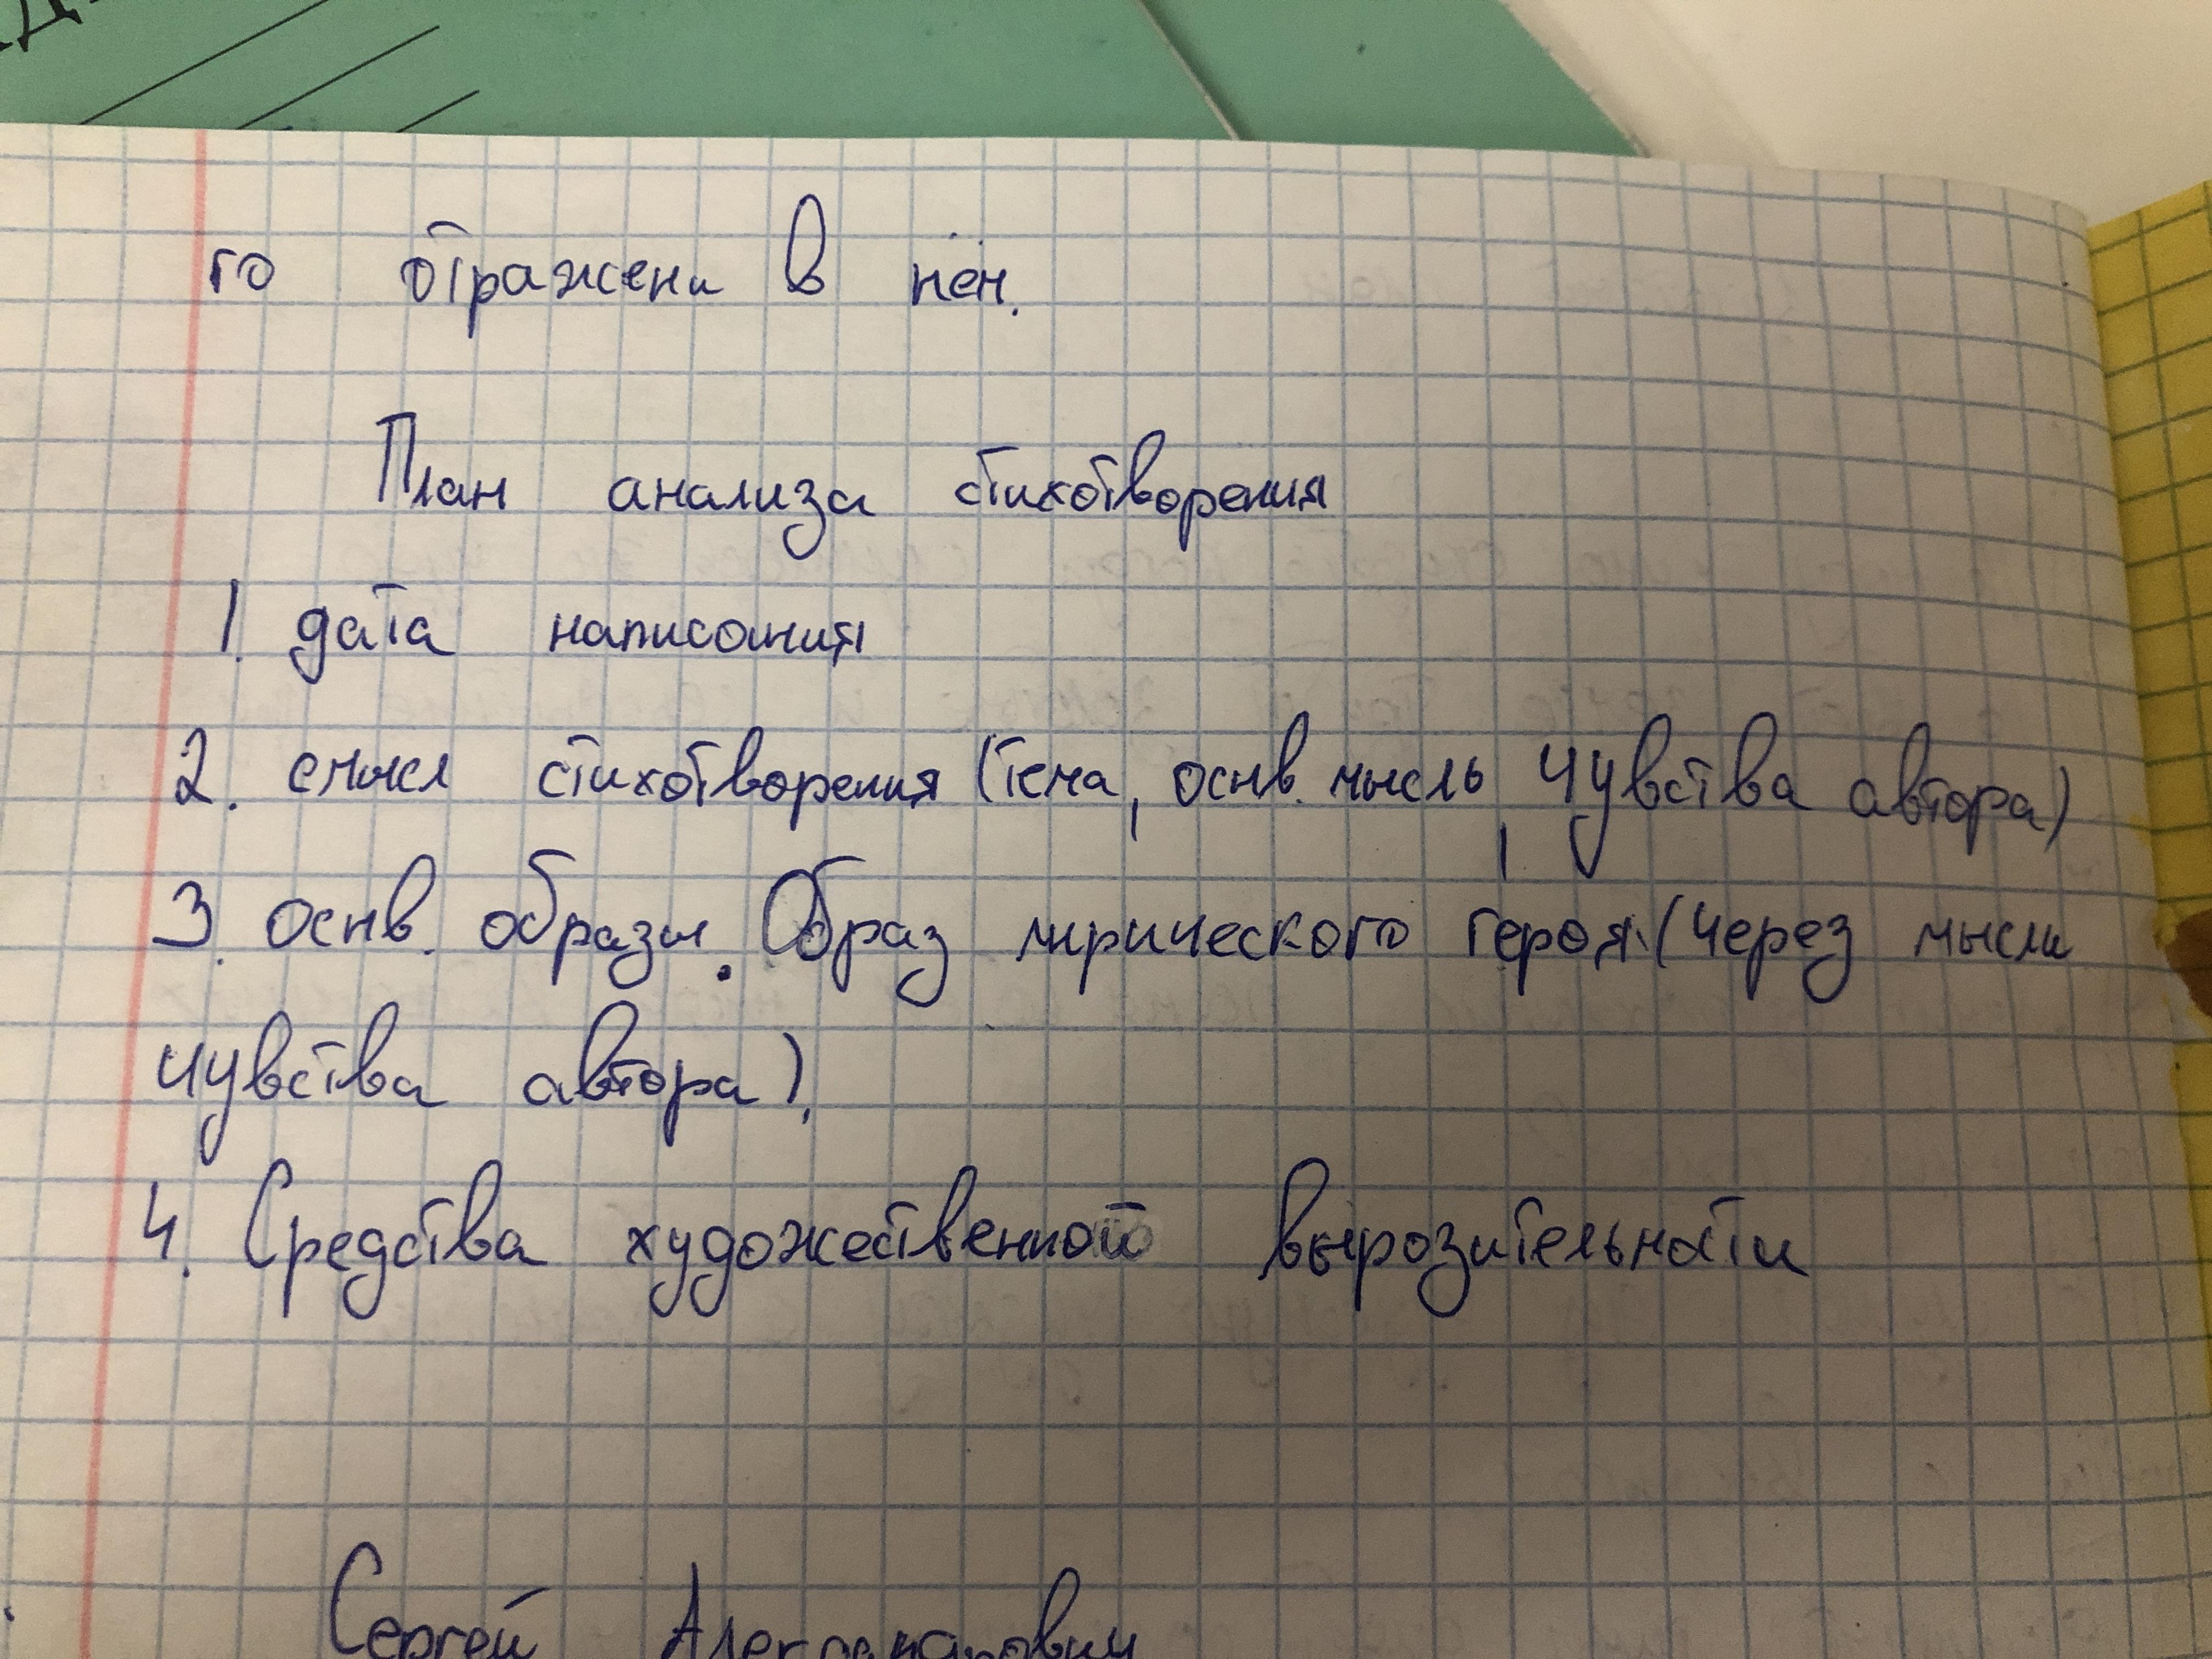 го отражени в нём.
План анализа стихотворения
1. дата написания
2. смысл стихотворения (тема, оснв. мысль, чувства автора)
3. оснв. образы. Образ лирического героя (через мысли
чувства автора).
4. Средства художественной вырозительности
Сергей Александрович